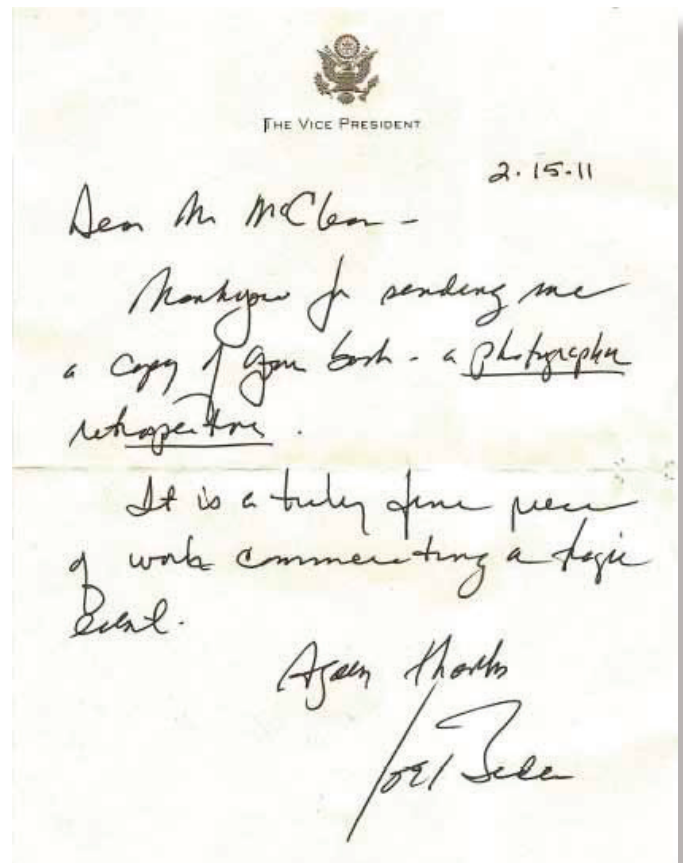 THE VICE PRESIDENT
2.15.11
Dear Mr McClean -
Thankyou for sending me
a copy of your book - a photographer
retrospective.
It is a truly fine piece
of work commerating a tragic
event.
Again thanks
Joe Biden